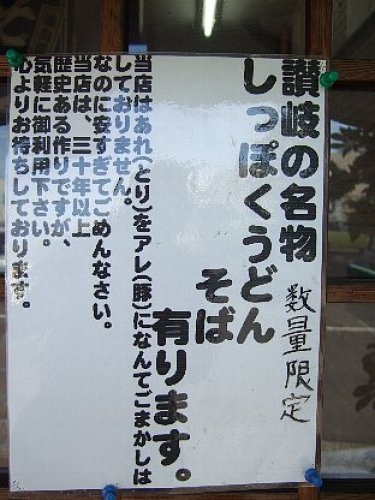 讃岐の名物
しっぽくうどん
そば
有ります。
数量限定
当店はあれ(とり)をアレ(豚)になんてごまかしは
しておりません。
なのに安すぎてごめんなさい。
当店は、三十年以上
歴史ある作りですが、
気軽に御利用下さい。
心よりお待ちしております。